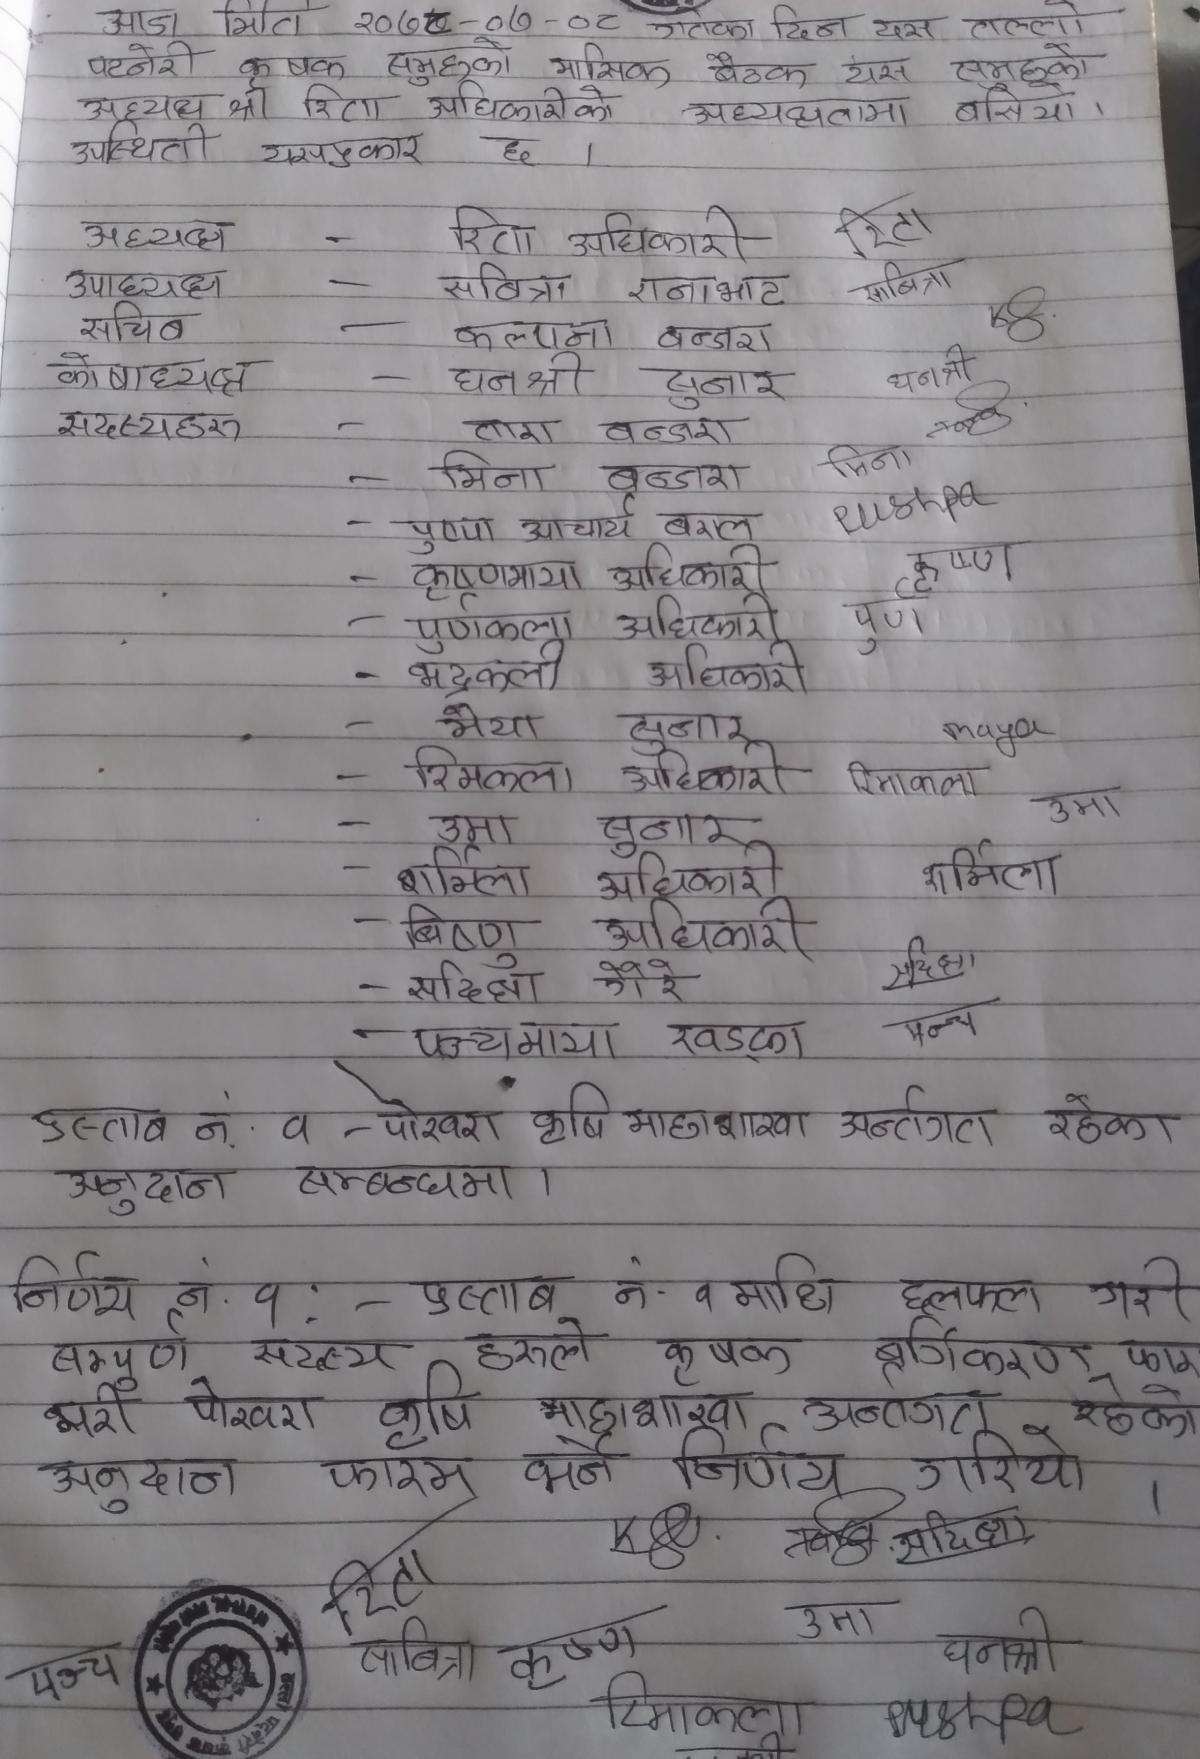 आज मिति २०७८-०७-०८ गतेका दिन यस तल्लो
पटनेरी कृषक समुहको मासिक बैठक यस समुहको
अध्यक्ष श्री रिता अधिकारीको अध्यक्षतामा बसियो ।
उपस्थिती यसप्रकार छ ।
अध्यक्ष - रिता अधिकारी रिता
उपाध्यक्ष - सबित्रा रानाभाट साबित्रा
सचिब - कल्पना बन्जरा
कोषाध्यक्ष - धनश्री सुनार धनश्री
सदस्यहरु - तारा बन्जरा
- मिना बन्जरा मिना
- पुष्पा आचार्य बराल Pushpa
- कृष्णमाया अधिकारी कृष्ण
- पुर्णकला अधिकारी पुर्ण
- भद्रकली अधिकारी
- मैया सुनार maya
- रिमकला अधिकारी रिमाकला
- उमा सुनार उमा
- शर्मिला अधिकारी शर्मिला
- बिष्णु अधिकारी
- सदिक्षा गैरे सदिक्षा
- पञ्चमाया खड्का पन्च
प्रस्ताब नं. १ - पोखरा कृषि माहाशाखा अर्न्तगत रहेका
अनुदान सम्बन्धमा ।
निर्णय नं. १ : - प्रस्ताब नं. १ माथि छलफल गरी
सम्पुर्ण सदस्य हरुले कृषक बर्गिकरण फारम
भरी पोखरा कृषि माहाशाखा अन्तगत रहेको
अनुदान फारम भर्ने निर्णय गरियो ।
सदिक्षा
रिता
उमा
पञ्च साबित्रा कृष्ण धनश्री
रिमाकला Pushpa